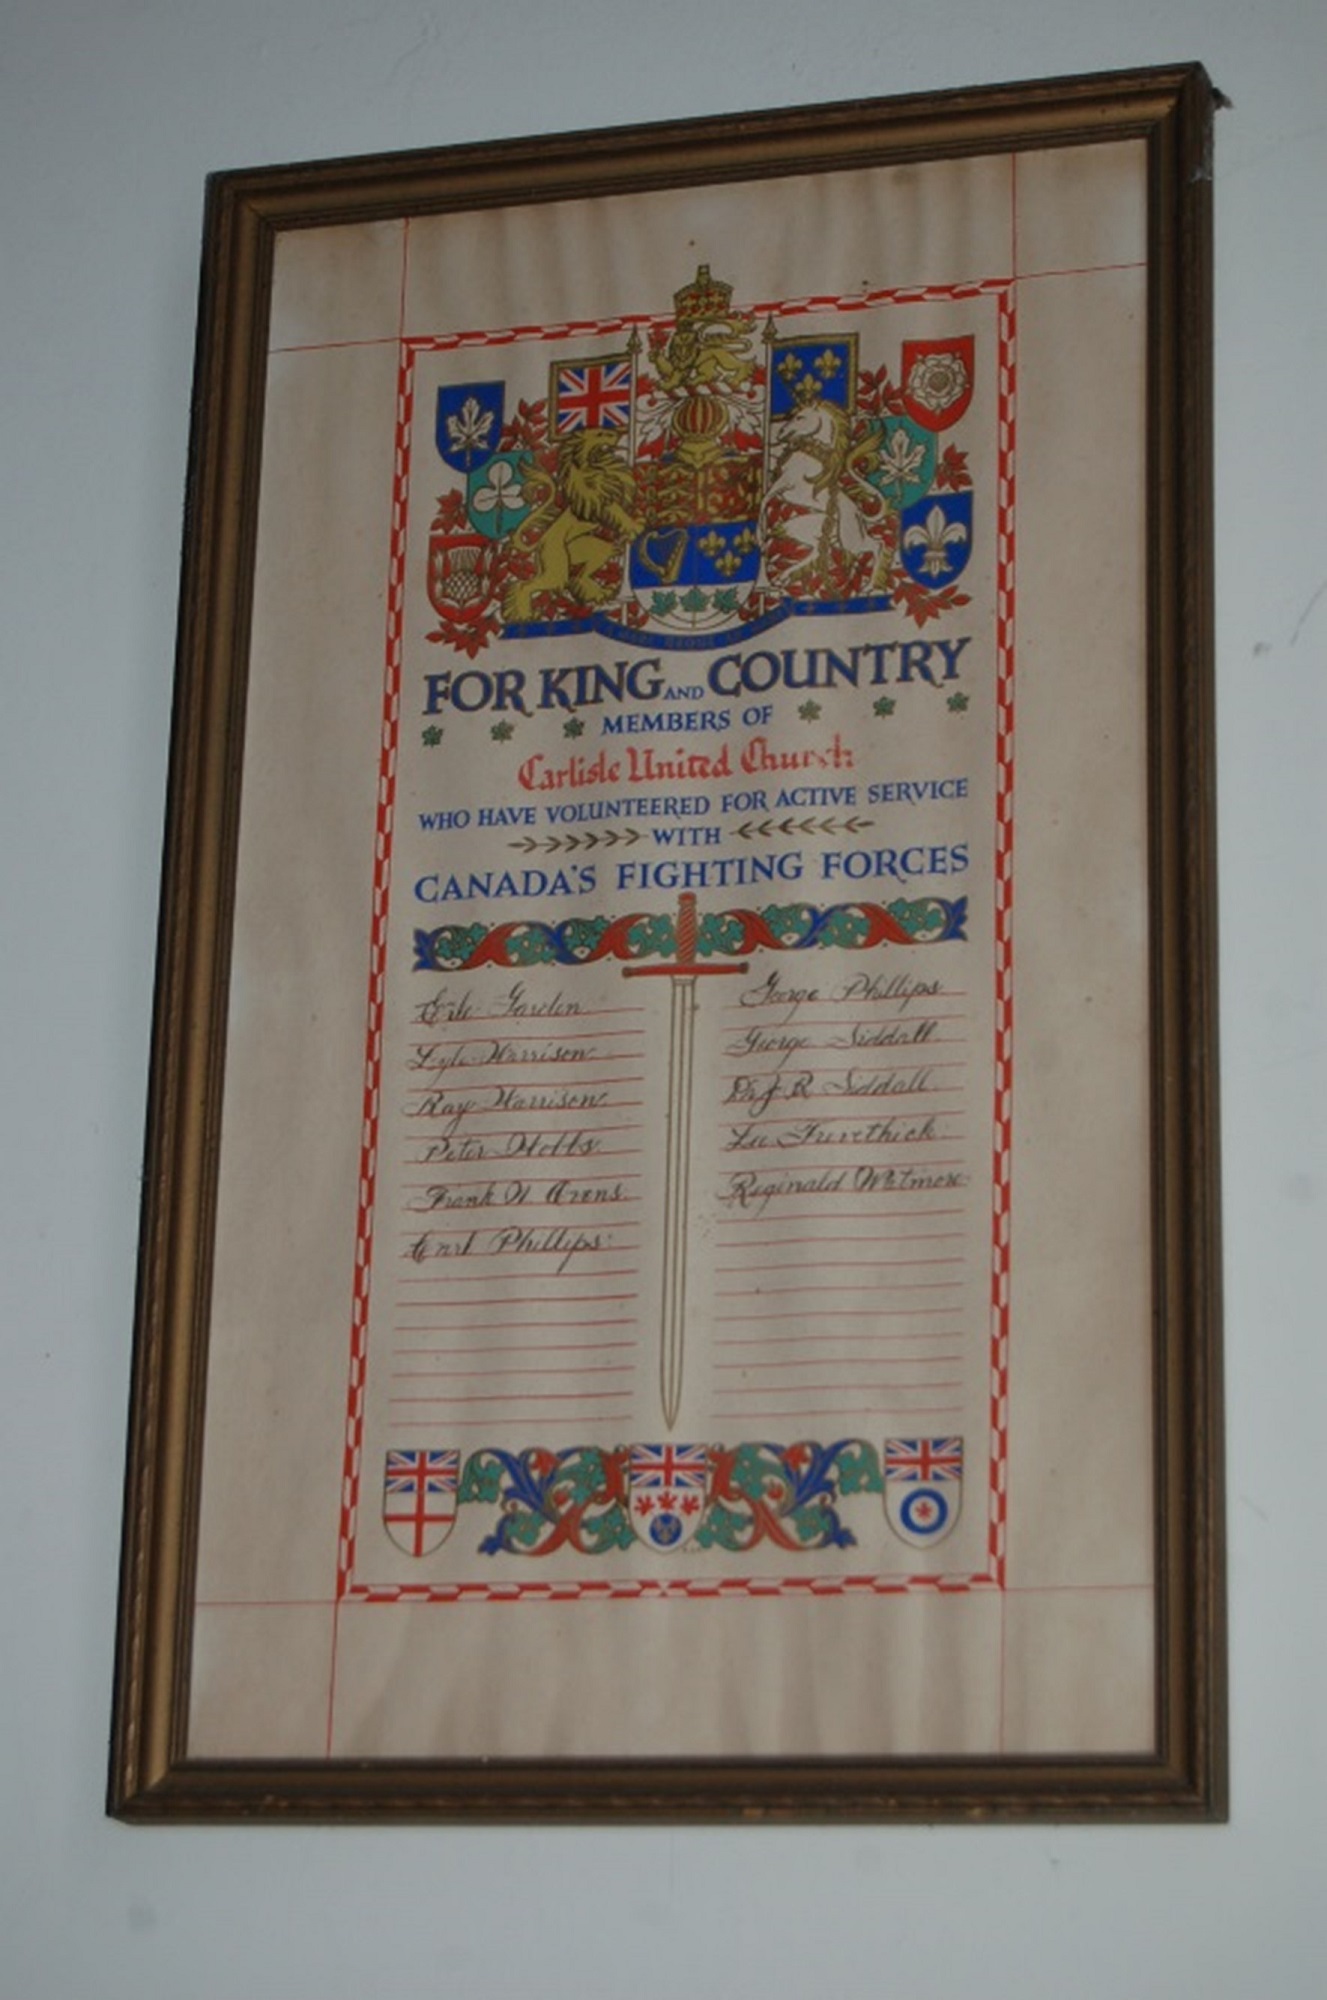 FOR KING AND COUNTRY
MEMBERS OF
Carlisle United Church
WHO HAVE VOLUNTEERED FOR ACTIVE SERVICE
WITH
CANADA'S FIGHTING FORCES
Garden
Lyle Harrison
Ray Harrison
Peter Hobbs
Frank W. Arens
Earl Phillips
George Phillips
George Siddall
Dr J R Siddall
Trevethick
Reginald Wetmore